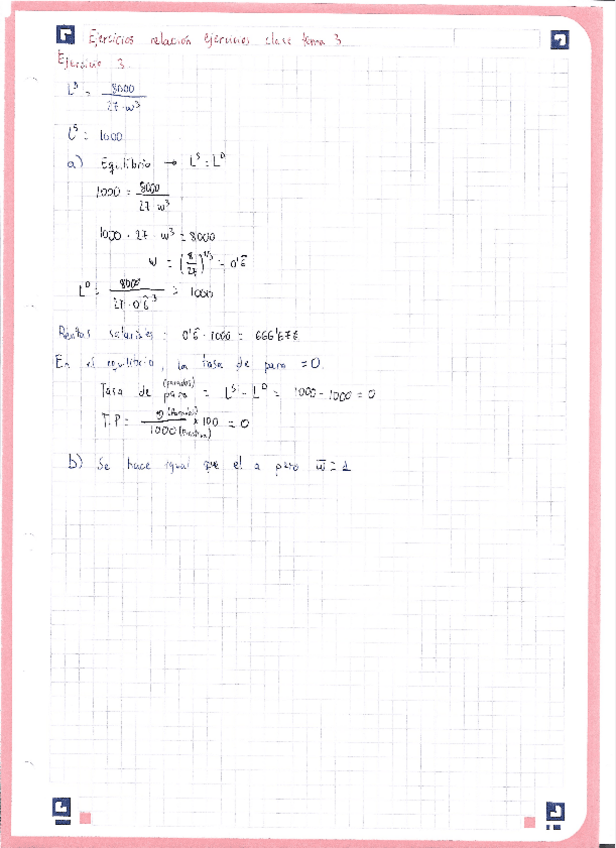 Ejercicios relación ejercicios clase tema 3
Ejercicio 3.
L^D = 8000 / 27·w^3
L^S = 1000
a) Equilibrio → L^S = L^D
1000 = 8000 / 27·w^3
1000 · 27 · w^3 = 8000
w = (8/27)^1/3 = 0'6̂
L^D = 8000 / 27·0'6̂^3 = 1000
Rentas salariales = 0'6̂ · 1000 = 666'67€
En el equilibrio, la tasa de paro = 0.
Tasa de paro (parados) = L^S - L^D = 1000 - 1000 = 0
T.P = 0 / 1000 × 100 = 0
b) Se hace igual que el a pero w̄ = 1